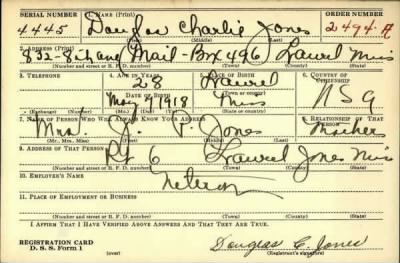 SERIAL NUMBER 1. NAME (Print) ORDER NUMBER
4445 Douglas Charlie Jones 2494-A
2. ADDRESS (Print)
832-8th and Mail-Box 496 Laurel Miss
(Number and street or R. F. D. number) (Town) (County) (State)
3. TELEPHONE 4. AGE IN YEARS 5. PLACE OF BIRTH 6. COUNTRY OF CITIZENSHIP
28 Laurel
DATE OF BIRTH (Town or county)
May 9 1918 Miss USA
(Exchange) (Number) (Mo.) (Day) (Yr.) (State or country)
7. NAME OF PERSON WHO WILL ALWAYS KNOW YOUR ADDRESS 8. RELATIONSHIP OF THAT PERSON
Mrs. J. P. Jones Mother
(Mr., Mrs., Miss) (First) (Middle) (Last)
9. ADDRESS OF THAT PERSON
Rt 6 Laurel Jones Miss
(Number and street or R. F. D. number) (Town) (County) (State)
10. EMPLOYER'S NAME
11. PLACE OF EMPLOYMENT OR BUSINESS
(Number and street or R. F. D. number) (Town) (County) (State)
I AFFIRM THAT I HAVE VERIFIED ABOVE ANSWERS AND THAT THEY ARE TRUE.
REGISTRATION CARD
D. S. S. Form 1 (over) Douglas C. Jones
(Registrant's signature)